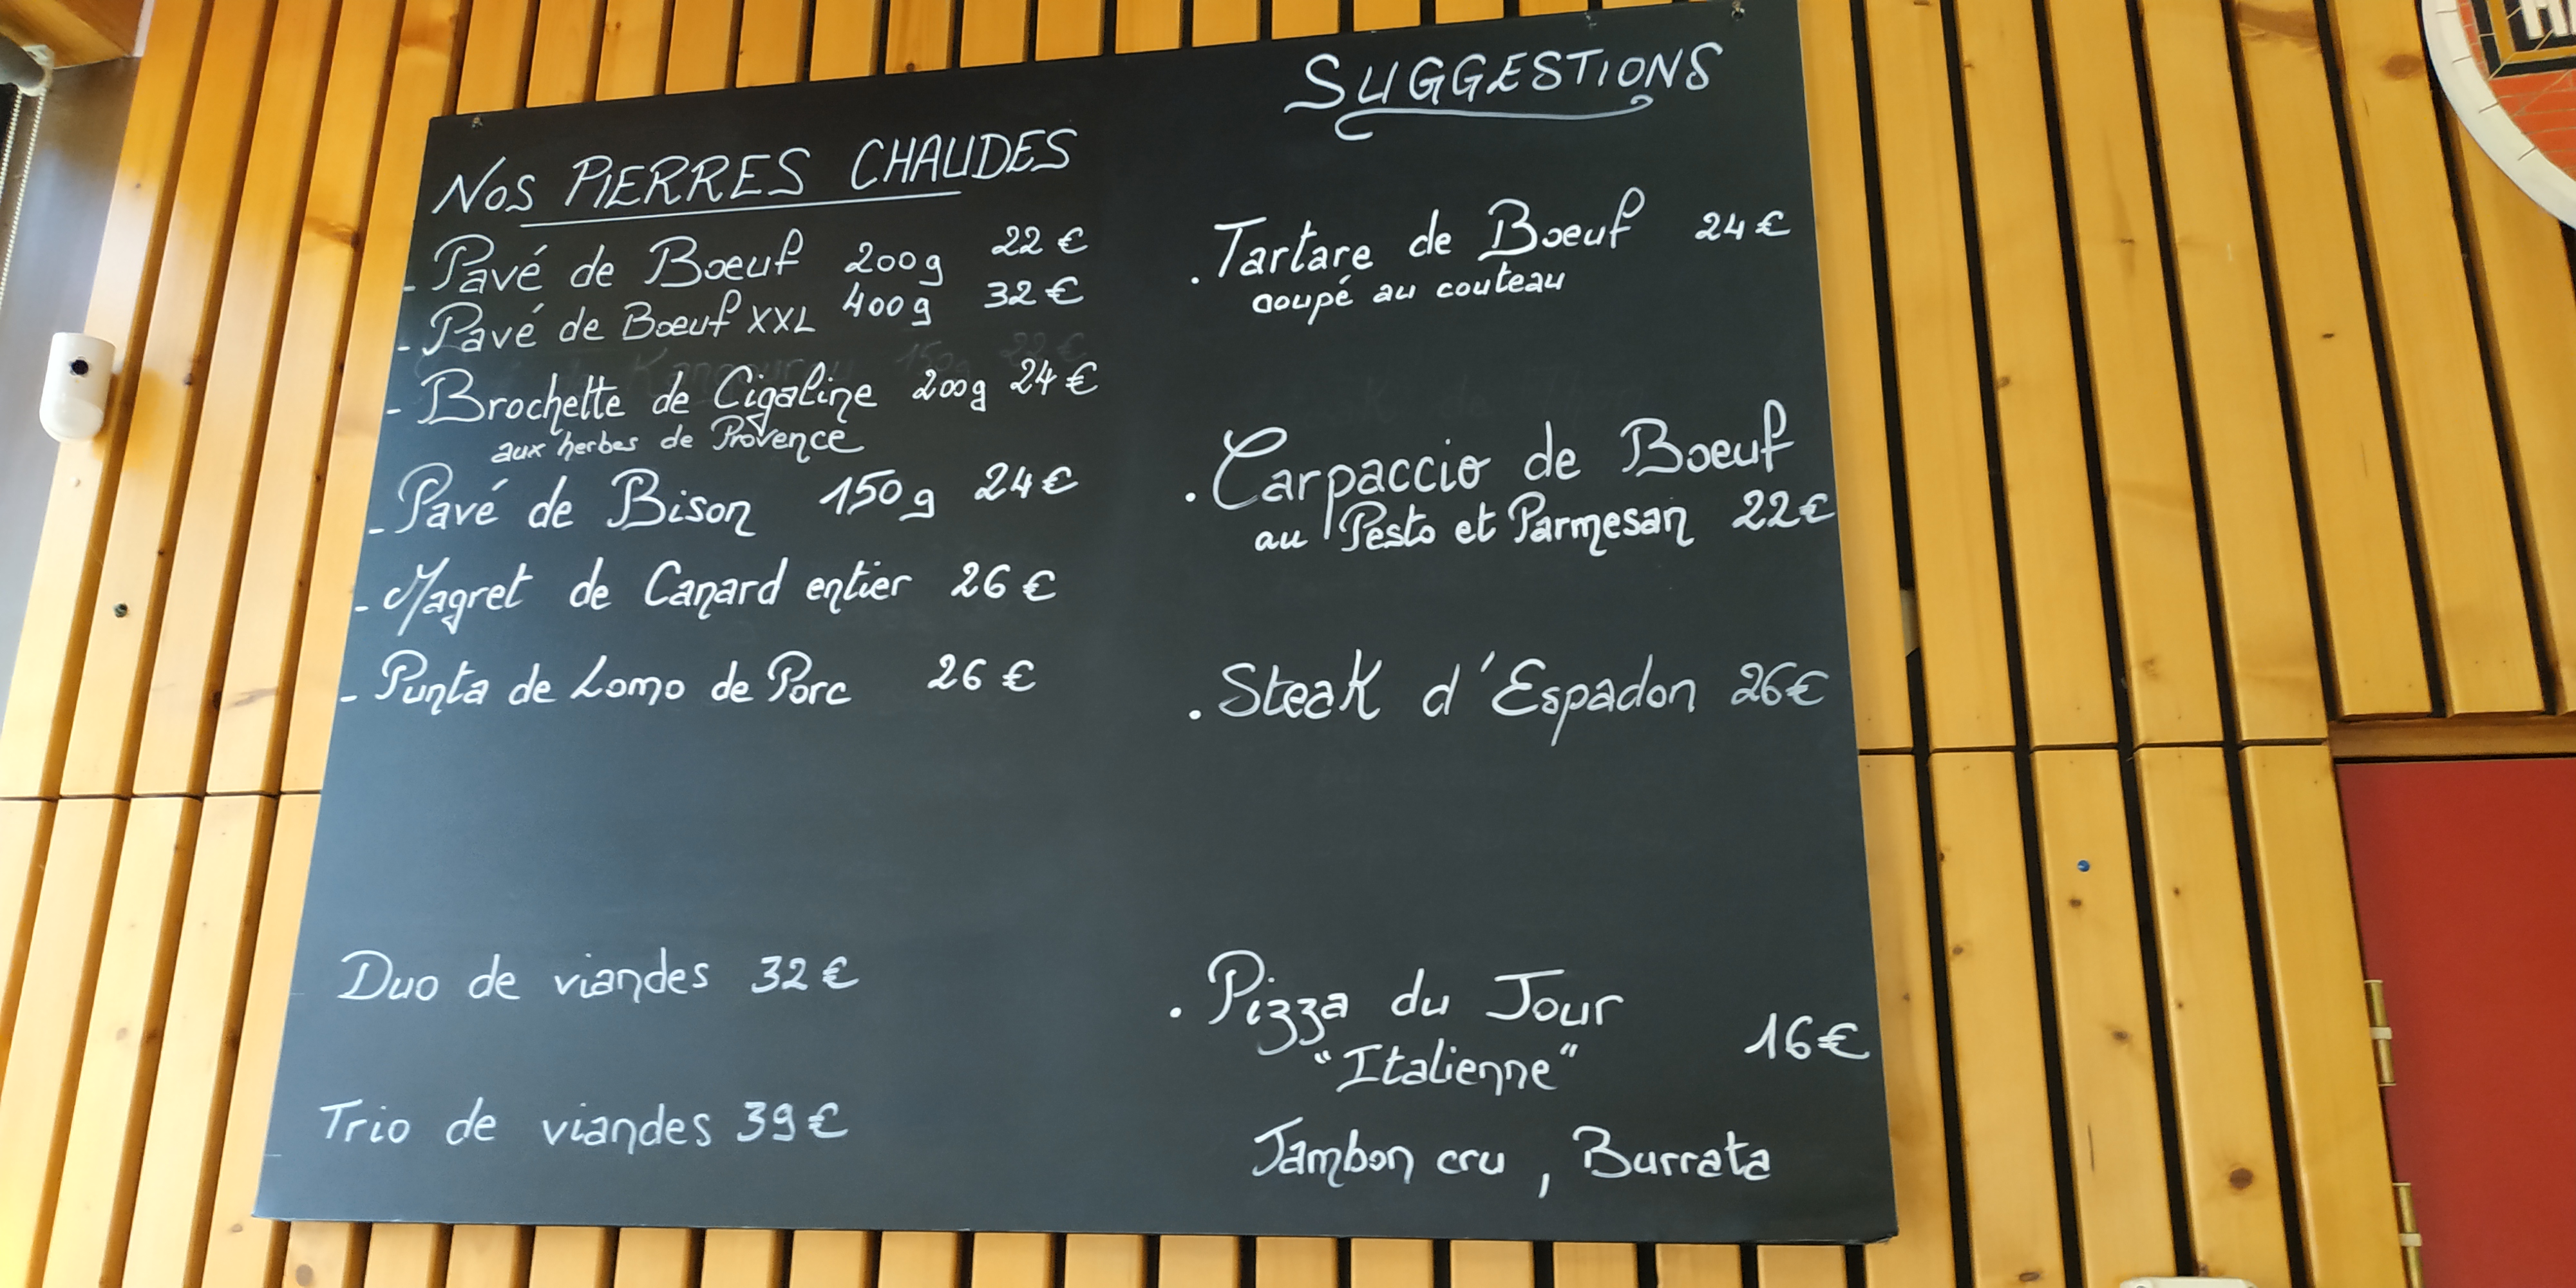 NOS PIERRES CHAUDES
- Pavé de Boeuf 200g 22 €
- Pavé de Boeuf XXL 400g 32 €
- Brochette de Cigaline 200g 24 €
aux herbes de Provence
- Pavé de Bison 150g 24 €
- Magret de Canard entier 26 €
- Punta de Lomo de Porc 26 €
Duo de viandes 32 €
Trio de viandes 39 €
SUGGESTIONS
. Tartare de Boeuf 24 €
coupé au couteau
. Carpaccio de Boeuf
au Pesto et Parmesan 22€
. Steak d'Espadon 26€
. Pizza du Jour
"Italienne" 16€
Jambon cru , Burrata